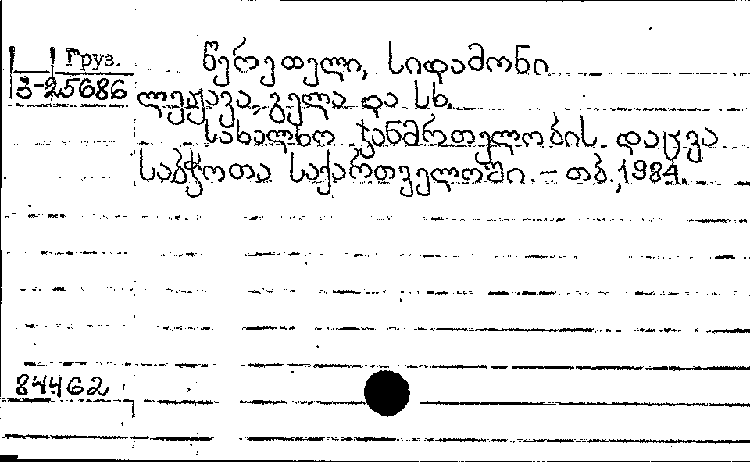 Груз.
3-25686
წერეთელი, სიდამონი
ლეჟავა, გელა და სხ.
სახალხო ჯანმრთელობის დაცვა
საბჭოთა საქართველოში. – თბ., 1984.
84462